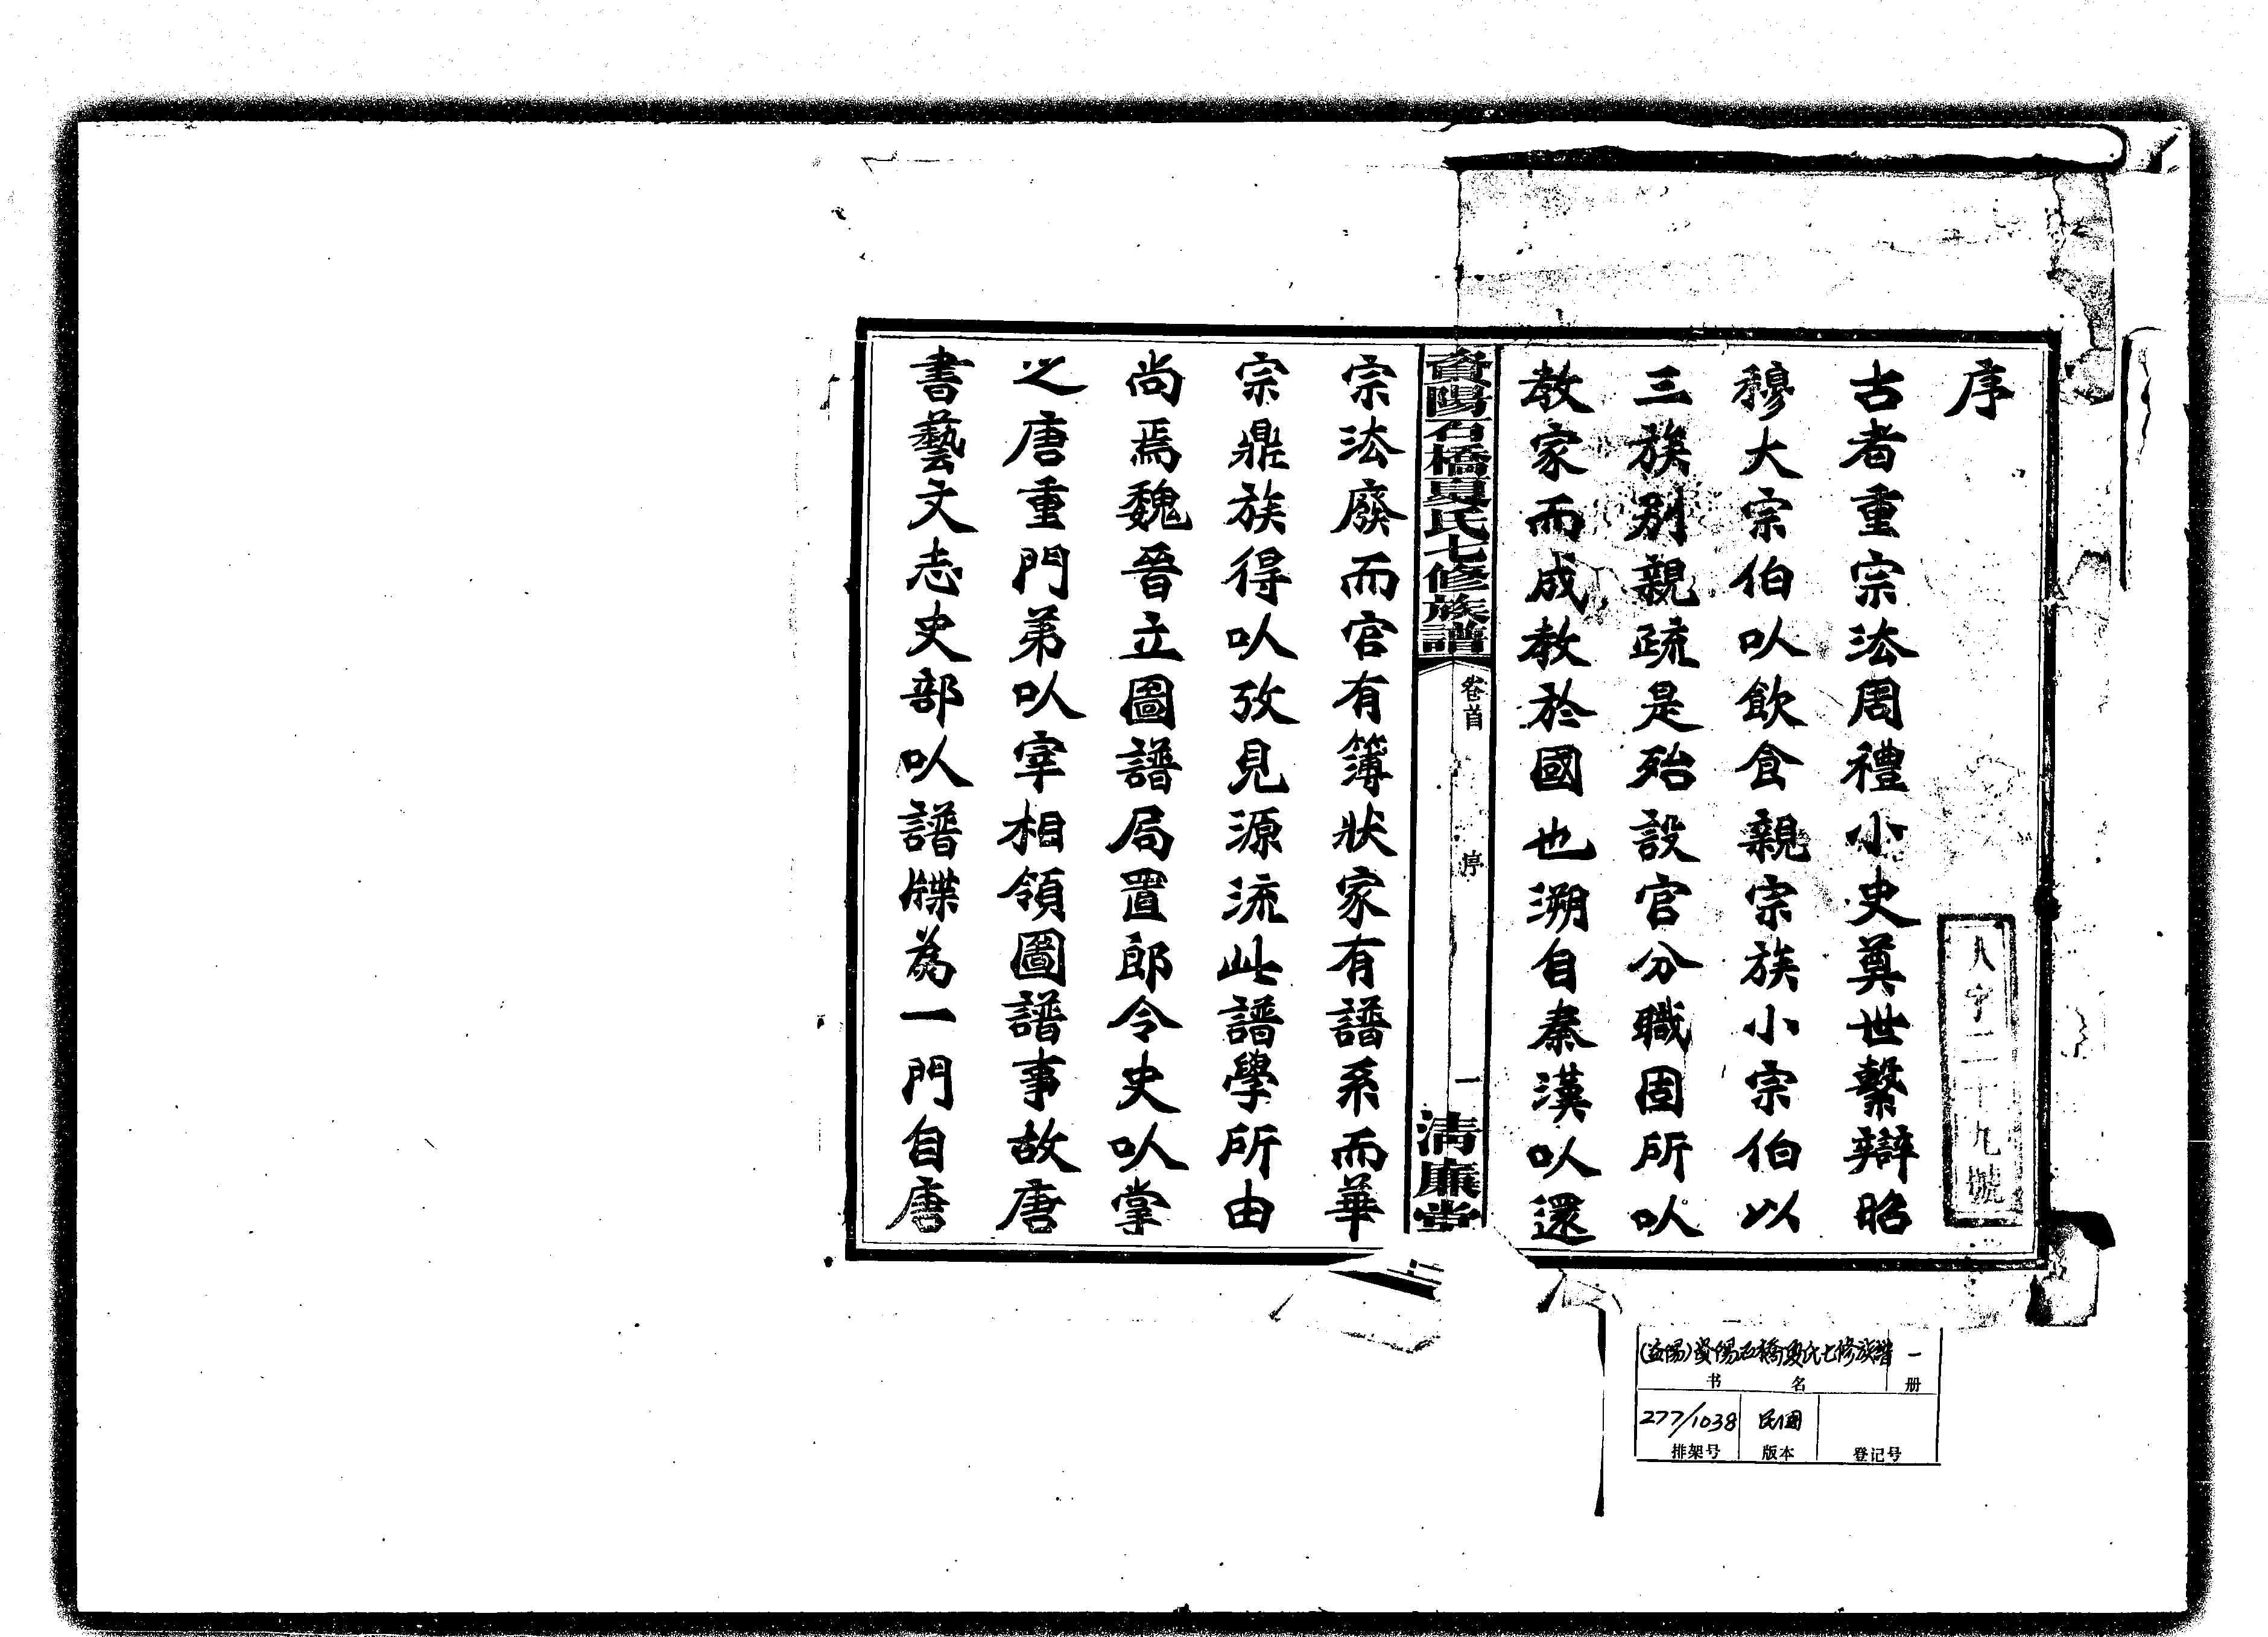 序
古者重宗法周禮小史奠世繫辯昭
穆大宗伯㕥飲食親宗族小宗伯以
三族別親疏是殆設官分職固所㕥
教家而成教於國也溯自秦漢㕥還
資陽石橋夏氏七修族譜
卷首
序
一
清廉堂
宗法廢而官有簿狀家有譜系而華
宗鼎族得㕥攷見源流此譜學所由
尚焉魏晉立圖譜局置郎令史㕥掌
之唐重門弟㕥宰相領圖譜事故唐
書藝文志史部㕥譜牒為一門自唐
人字二十九號
(益陽)資陽石橋夏氏七修族譜 一
书名 册
277/1038 民國
排架号 版本 登记号